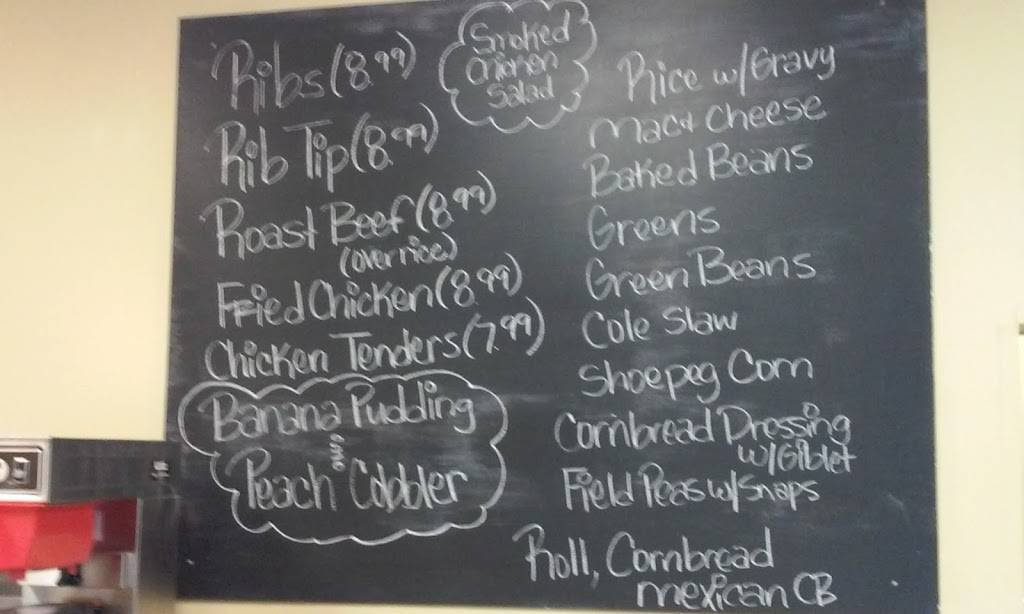 Ribs (8.99)
Rib Tip (8.99)
Roast Beef (8.99)
(over rice)
Fried Chicken (8.99)
Chicken Tenders (7.99)
Banana Pudding
Peach Cobbler
Smoked
Chicken
Salad
Rice w/Gravy
Mac & Cheese
Baked Beans
Greens
Green Beans
Cole Slaw
Shoepeg Corn
Cornbread Dressing
w/Giblet
Field Peas w/Snaps
Roll, Cornbread
mexican CB